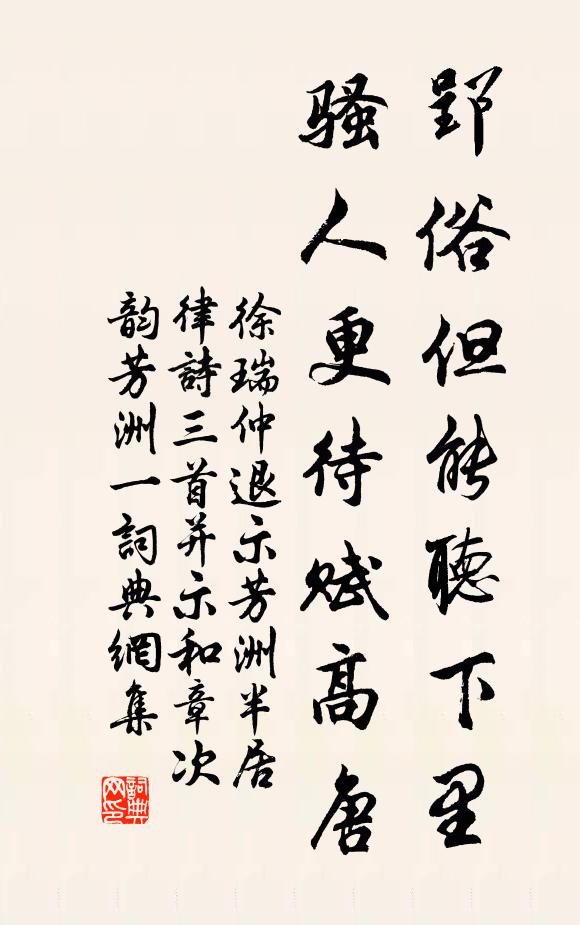 郢俗但能聽下里
騷人更待賦高唐
徐瑞仲退示芳洲半居
律詩三首并示和章次
韵芳洲一詞典網集
詞典
网印